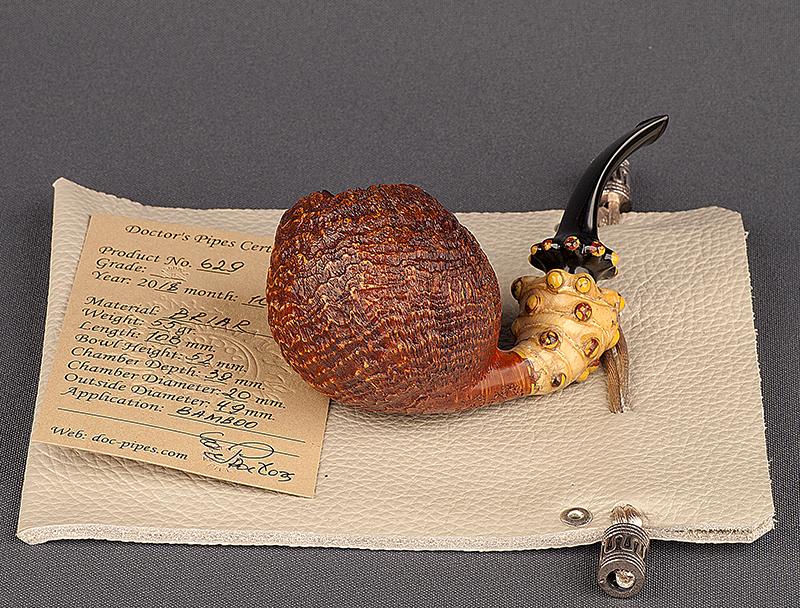 Doctor's Pipes Cert
Product No. 629
Grade:
Year: 2018 month: 10
Material: BRIAR
Weight: 55 gr.
Length: 108 mm.
Bowl Height: 52 mm.
Chamber Depth: 39 mm.
Chamber Diameter: 20 mm.
Outside Diameter: 49 mm.
Application: BAMBOO
Web: doc-pipes.com